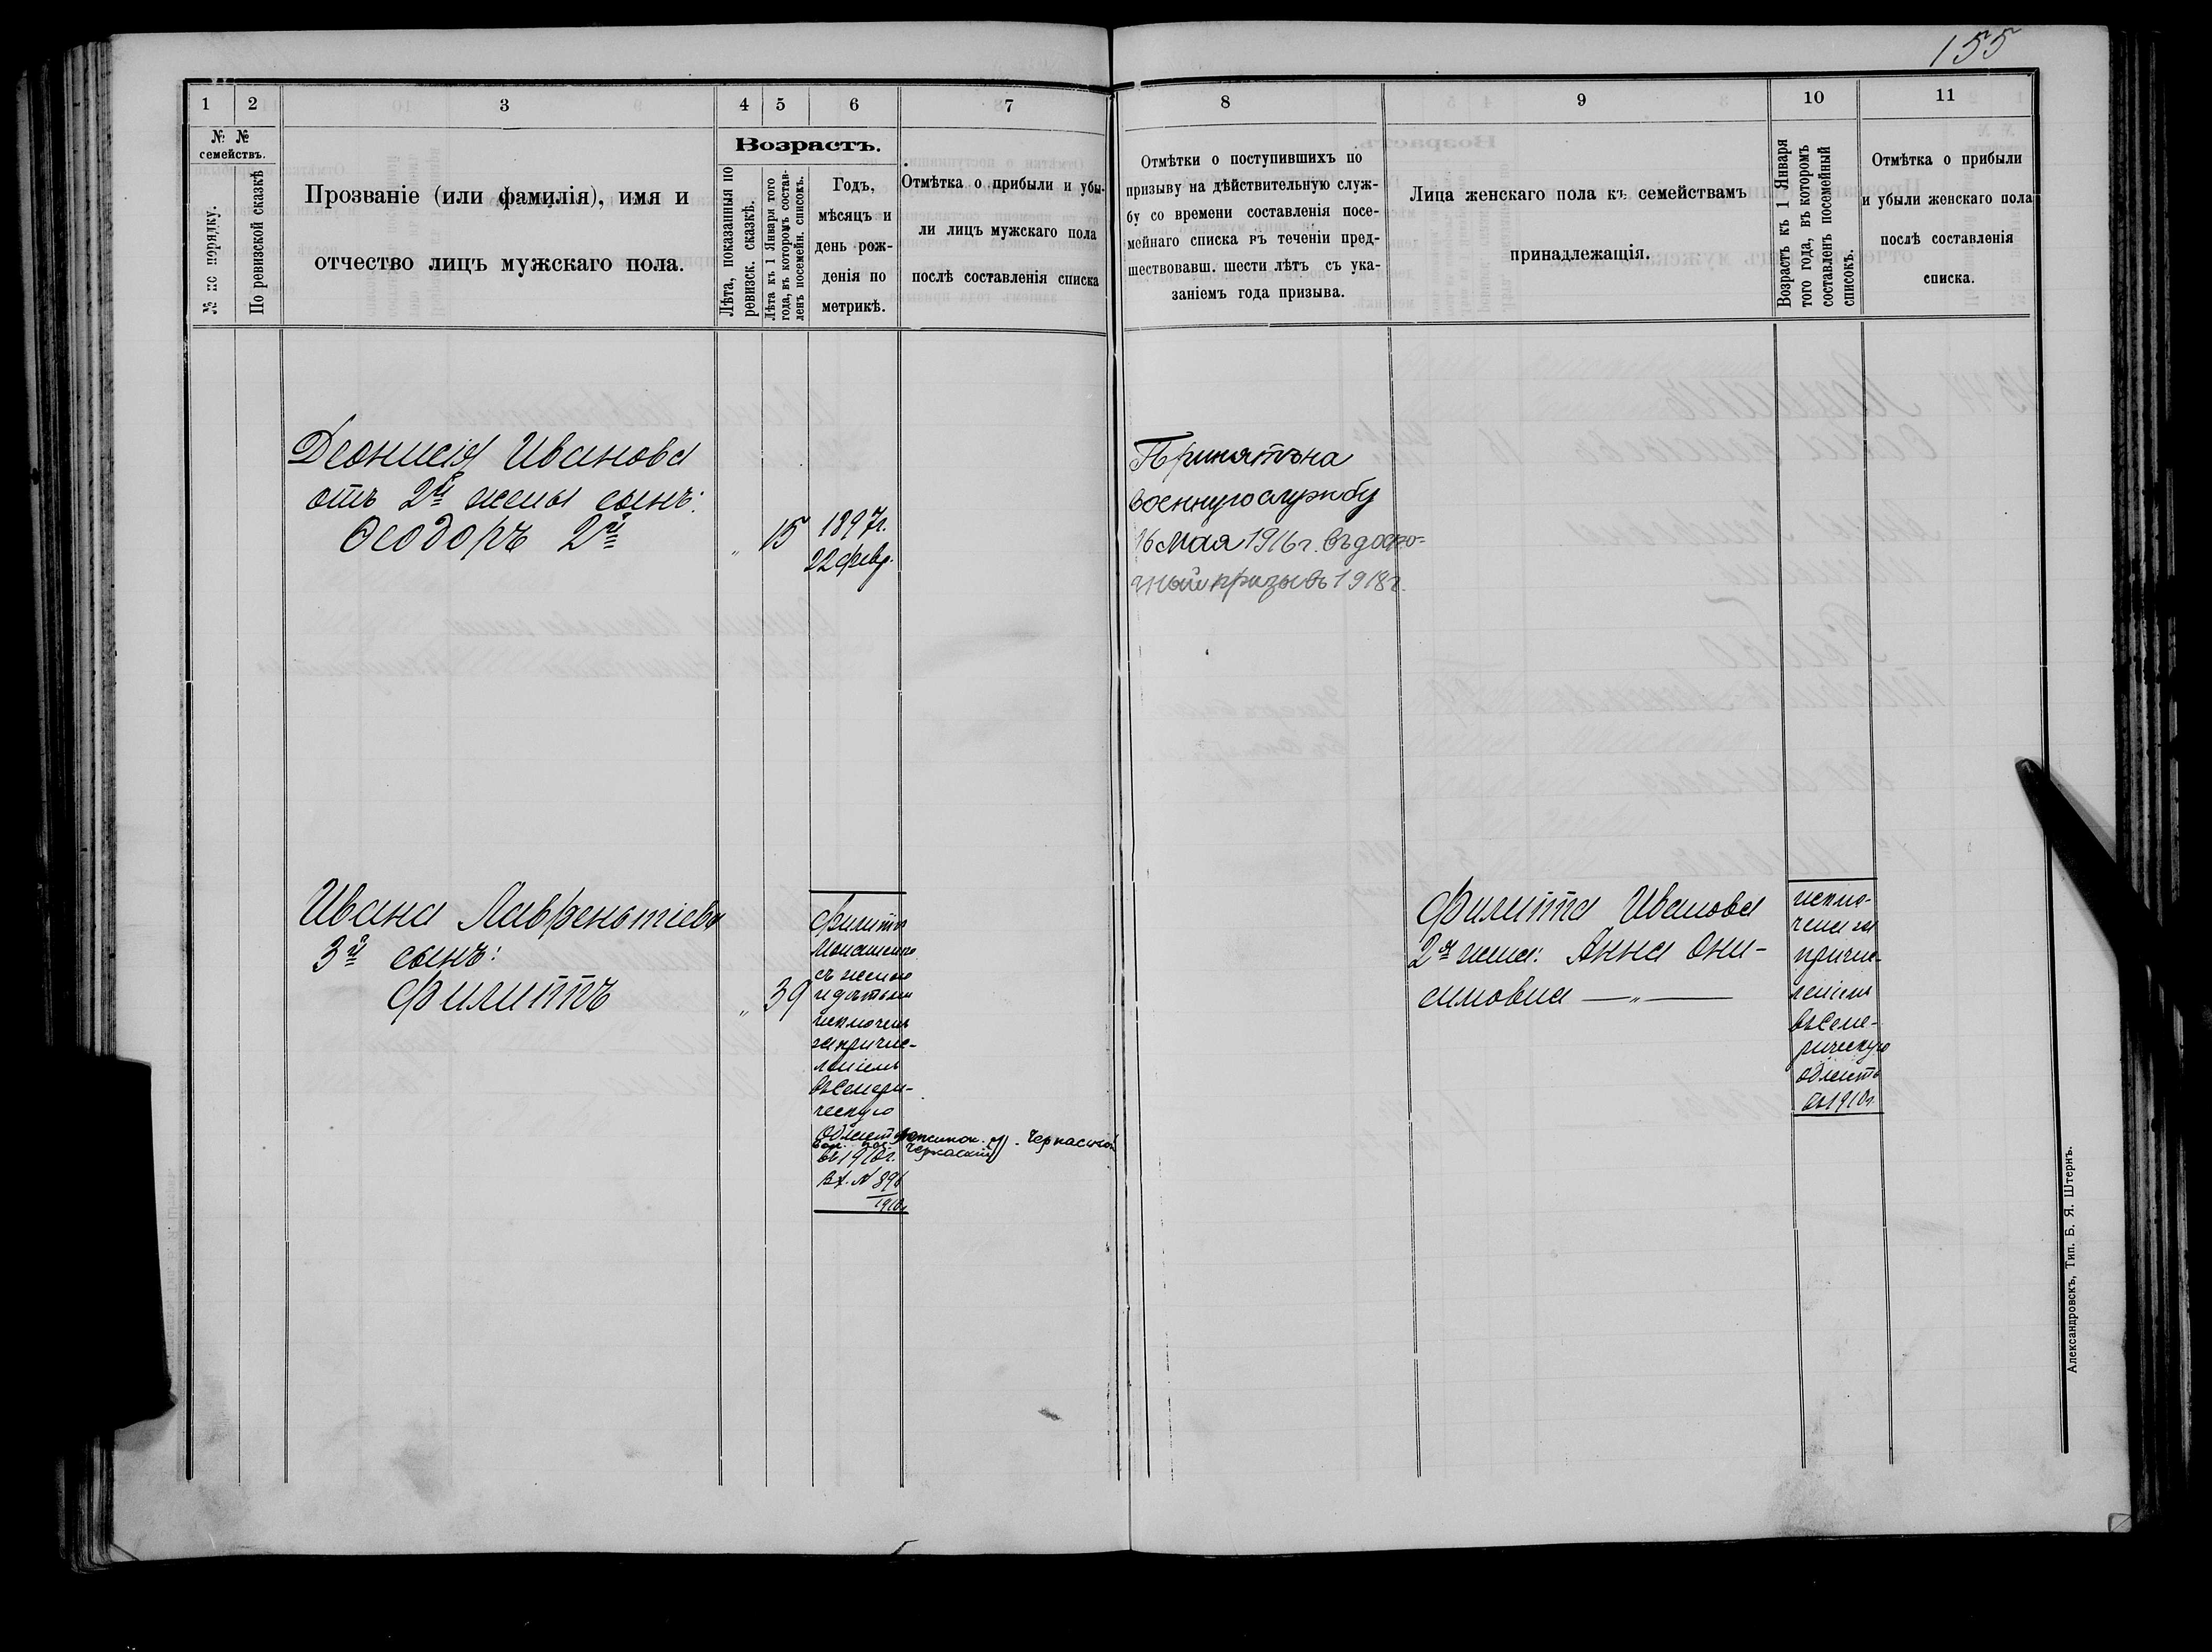 155
1 2 3 4 5 6 7
№ № семействъ.
№ по порядку.
По ревизской сказкѣ
Прозваніе (или фамилія), имя и
отчество лицъ мужскаго пола.
Возрастъ.
Лѣта, показанныя по
ревизск. сказкѣ.
Лѣта къ 1 Января того
года, въ которомъ состав-
ленъ посемейн. списокъ.
Годъ,
мѣсяцъ и
день рож-
денія по
метрикѣ.
Отмѣтка о прибыли и убы-
ли лицъ мужскаго пола
послѣ составленія списка
Деонисія Иванова
отъ 2й жены сынъ:
Ѳеодоръ 2й " 15 1897г.
22 февр.
Ивана Лаврентіева
3й сынъ:
Филиппъ " 39
Филиппъ
съ женою
и дѣтьми
исключенъ
за причис-
леніемъ
въ Семири-
ческую
Област
въ 1910г.
Вх. № 896
1910г.
8 9 10 11
Отмѣтки о поступившихъ по
призыву на дѣйствительную служ-
бу со времени составленія посе-
мейнаго списка въ теченіи пред-
шествовавш. шести лѣтъ съ ука-
заніемъ года призыва.
Лица женскаго пола къ семействамъ
принадлежащія.
Возрастъ къ 1 Января
того года, въ которомъ
составленъ посемейный
списокъ.
Отмѣтка о прибыли
и убыли женскаго пола
послѣ составленія
списка.
Принятъ на
военную службу
16 Мая 1916г. въ досро-
чный призывъ 1918г.
Филиппа Иванова
2я жена: Анна Они-
симовна — " —
исклю-
чена за
причис-
леніемъ
въ Семе-
рическую
Область
въ 1910г.
Александровскъ, Тип. Б. Я. Штернъ.